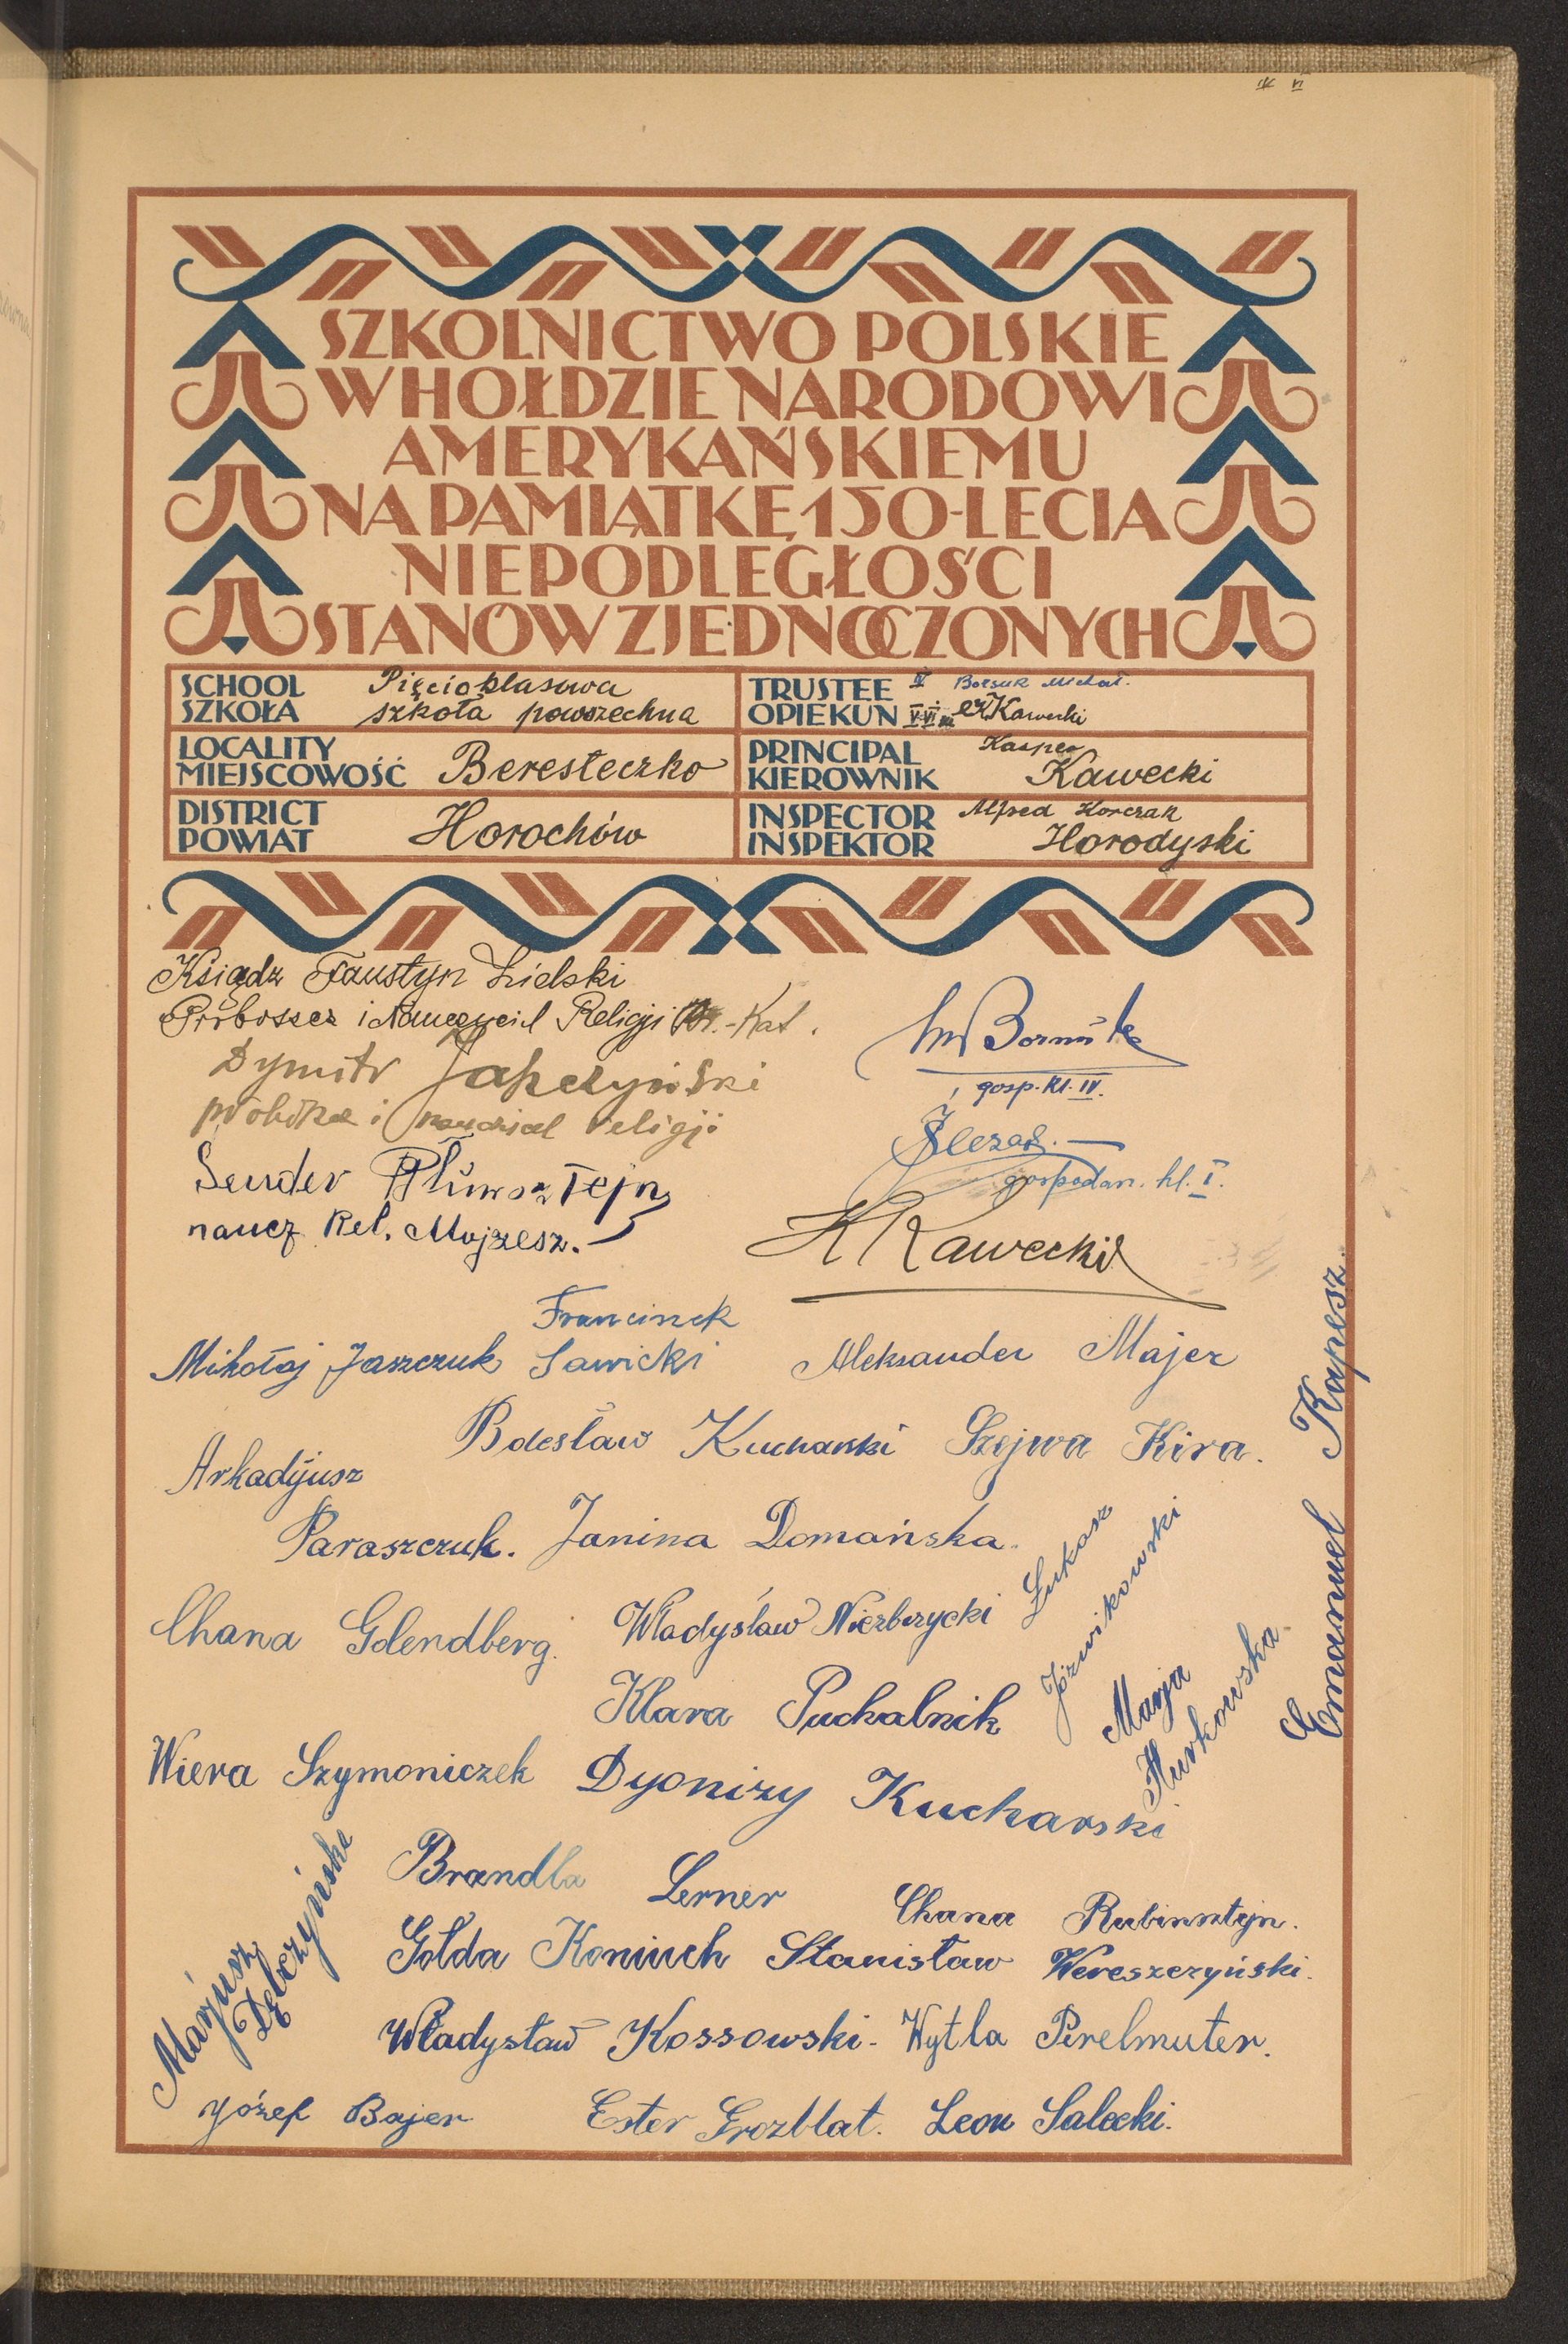 IV VI
SZKOLNICTWO POLSKIE
W HOŁDZIE NARODOWI
AMERYKAŃSKIEMU
NA PAMIĄTKĘ 150-LECIA
NIEPODLEGŁOŚCI
STANÓW ZJEDNOCZONYCH
SCHOOL
SZKOŁA
Pięcioklasowa
szkoła powszechna
TRUSTEE
OPIEKUN
IV Borsuk Michał.
Kawecki
LOCALITY
MIEJSCOWOŚĆ
Beresteczko
PRINCIPAL
KIEROWNIK
Kasper
Kawecki
DISTRICT
POWIAT
Horochów
INSPECTOR
INSPEKTOR
Alfred Korczak
Horodyski
Ksiądz Faustyn Lielski
Proboszcz i Nauczyciel Religji -Kat.
Dymitr
proboszcz i religji
Sender
naucz Rel. Mojżesz.
gosp. kl. IV.
gospodarz. kl. I.
K Kawecki
Mikołaj Jaszczuk
Franciszek
Sawicki
Aleksander Majer
Bolesław Kucharski
Szejwa Kira.
Arkadjusz
Paraszczuk.
Janina Domańska.
Chana Goldenberg.
Władysław Niezbrzycki
Łukasz
Józwikowski
Klara Puchalnik
Marja
Hurkowska
Emanuel Kapesz.
Wiera Szymoniczek
Dyonizy Kucharski
Brandla Lerner
Chana Rubinsztyn.
Marjusz
Dębczyński
Golda Koniuch
Stanisław Wereszczyński.
Władysław Kossowski.
Wytla Perelmuter.
Józef Bajer
Ester Grozblat.
Leon Salecki.